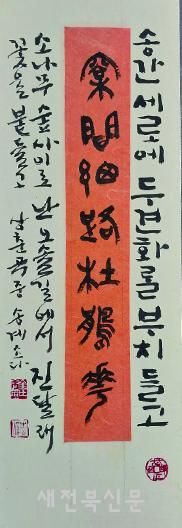 송간 세로에 두견화를 부치 들고
松間細路杜鵑花
소나무 숲사이로 난 오솔길에서 진달래
꽃을 붙들고
상춘곡 중
새전북신문